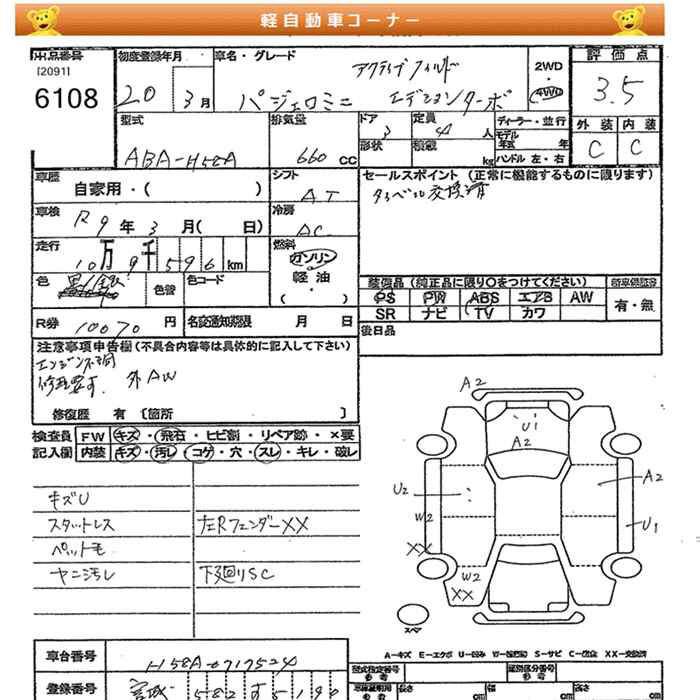 軽自動車コーナー
出品番号
[2091]
6108
初度登録年月
20 3月
車名・グレード
アクティブフィールド
パジェロミニ エディションターボ
2WD
・
4WD
評価点
3.5
外装 内装
C C
型式
ABA-H58A
排気量
660 CC
ドア
3
形状
定員
4 人
積載
kg
ディーラー・並行
モデル年式 年
ハンドル 左・右
車歴
自家用・( )
シフト
AT
セールスポイント (正常に機能するものに限ります)
タイベル交換済
車検
R9年3月( 日)
冷房
AC
走行
10万9千596km
燃料
ガソリン
軽油
・
( )
色
色替
色コード
装備品 (純正品に限り○をつけてください)
PS PW ABS エアB AW
SR ナビ TV カワ
新車保証書
有・無
R券 10070 円
名変通知期限 月 日
後日品
注意事項申告欄 (不具合内容等は具体的に記入して下さい)
エンジン不調
修理要す. 外AW
修復歴 有 [箇所 ]
検査員 FW キズ・飛石・ヒビ割・リペア跡・×要
記入欄 内装 キズ・汚レ・コゲ・穴・スレ・キレ・破レ
キズU
スタットレス 左Rフェンダー××
ペット毛
ヤニ汚レ 下廻りSC
A2
U1
A2
U2
A2
W2
U1
XX
W2
XX
スペア
A-キズ E-エクボ U-凹み W-補修跡 S-サビ C-腐食 XX-交換済
車台番号 H58A-0717524
登録番号 宮城 582 す 5190
型式指定番号 参考
類別区分番号 参考
車検証明用 参考
長さ cm
幅 cm
高さ cm